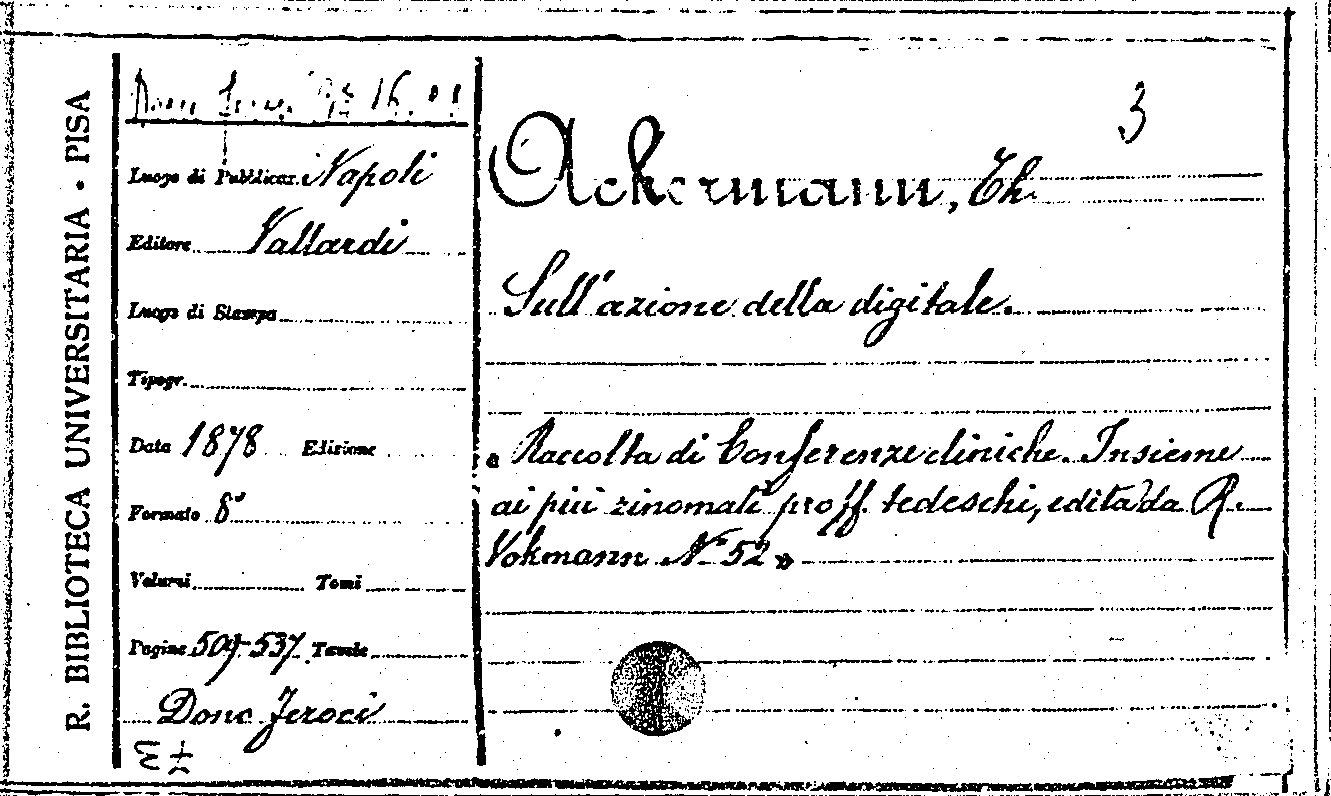 R. BIBLIOTECA UNIVERSITARIA · PISA
16.
Luogo di Pubblicaz. Napoli
Editore Vallardi
Luogo di Stampa
Tipogr.
Data 1878 Edizione
Formato 8°
Volumi Tomi
Pagine 509-537. Tavole
Dono Feroci
3
Ackermann, Th.
Sull'azione della digitale.
« Raccolta di Conferenze cliniche. Insieme
ai più rinomati proff. tedeschi, edita da R.
Vokmann N° 52 »